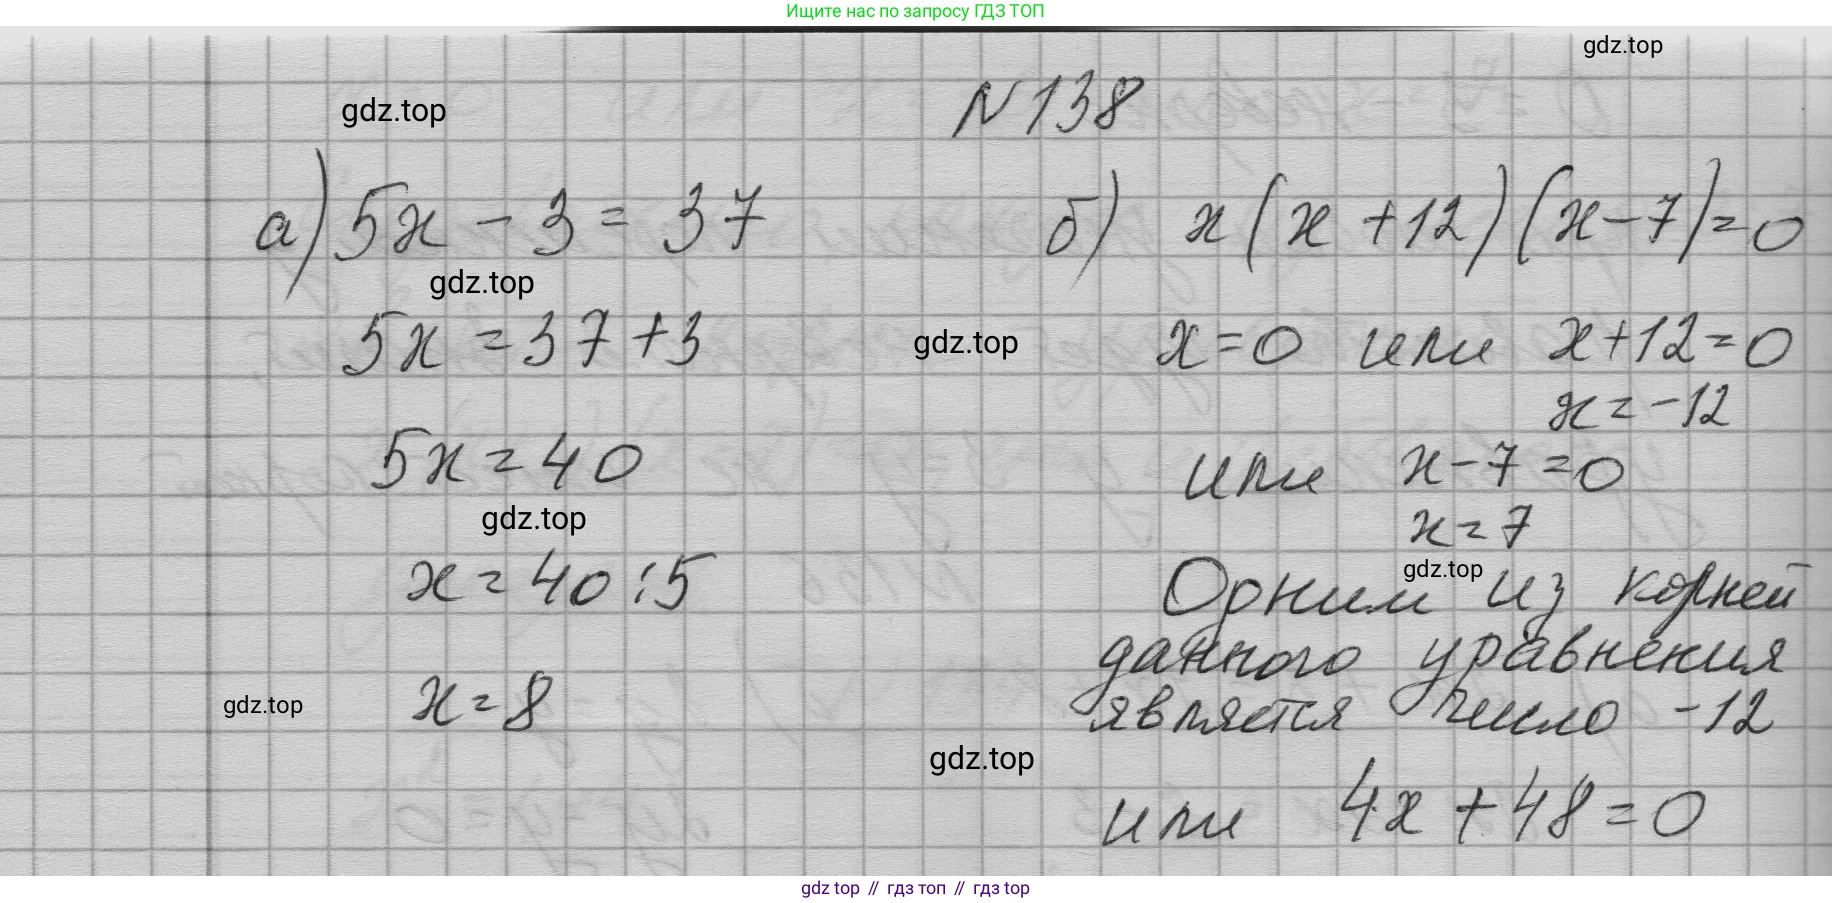 Ищите нас по запросу ГДЗ ТОП
gdz.top
gdz.top
N 138
а) 5x - 3 = 37
gdz.top
5x = 37 + 3
5x = 40
gdz.top
x = 40 : 5
gdz.top
x = 8
б) x (x + 12) (x - 7) = 0
gdz.top
x = 0 или x + 12 = 0
x = -12
или x - 7 = 0
x = 7
gdz.top
Одним из корней
данного уравнения
является число -12
gdz.top
или 4x + 48 = 0
gdz top // гдз топ // гдз top